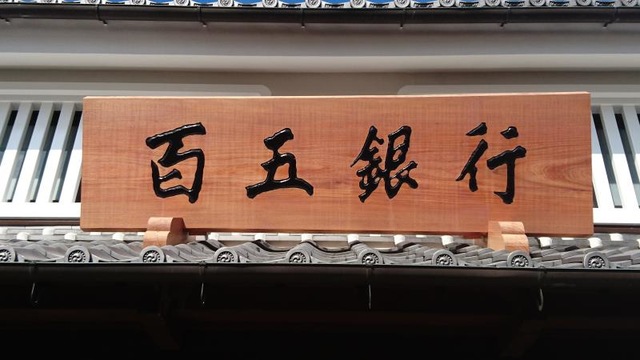 百五銀行